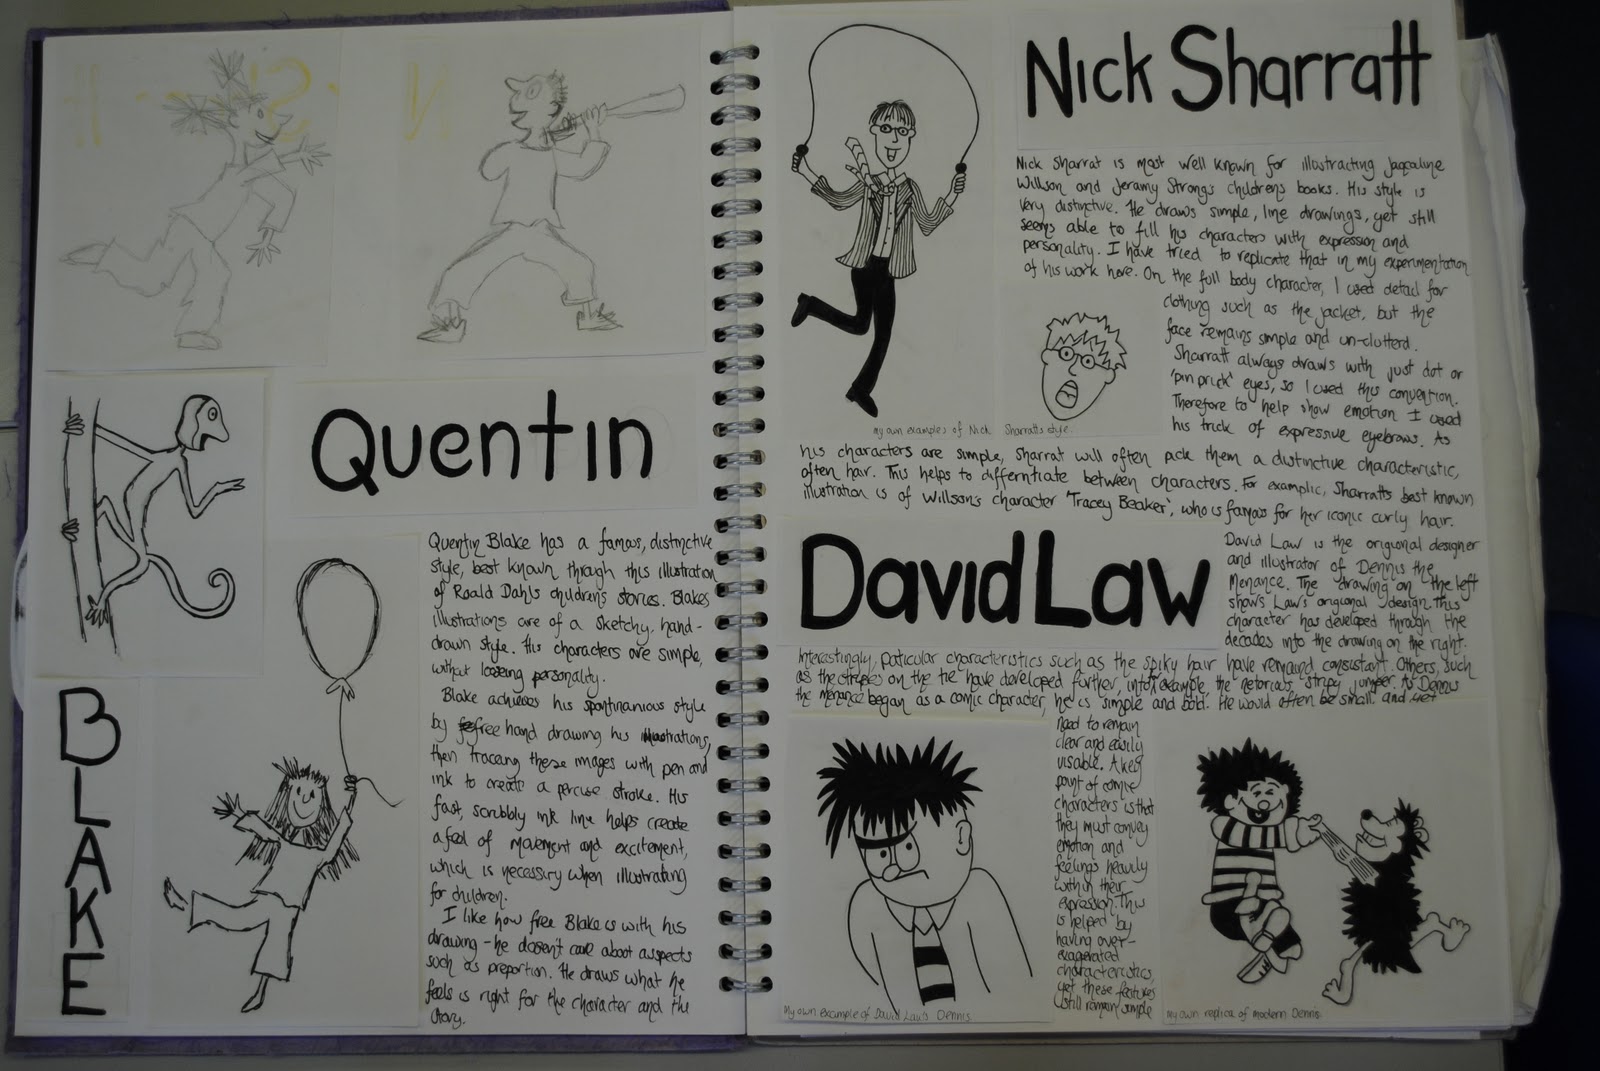 Quentin
BLAKE
Quentin Blake has a famous, distinctive
style, best known through this illustration
of Roald Dahls children's stories. Blakes
illustrations are of a sketchy, hand-
drawn style. His characters are simple,
without loosing personality.
Blake achieves his spontinanious style
by freehand drawing his illustrations,
then traceing these images with pen and
ink to create a percise stroke. His
fast, scribbly ink line helps create
a feel of movement and excitement,
which is necessiry when illustrating
for children.
I like how free Blake is with his
drawing - he doesn't care about asspects
such as preportion. He draws what he
feels is right for the character and the
story.
Nick Sharratt
Nick Sharrat is most well known for illustracting Jaqcaline
Willson and Jeramy Strongs childrens books. His style is
very distinctive. He draws simple, line drawings, yet still
seems able to fill his characters with expression and
personality. I have tried to replicate that in my experimentation
of his work here. On the full body character, I used detail for
clothing such as the jacket, but the
face remains simple and un-clutterd.
Sharratt always draws with just dot or
'pin prick' eyes, so I used this convention.
Therefore to help show emotion I used
his trick of expressive eyebrows. As
my own examples of Nick Sharratts style.
his characters are simple, Sharrat will often pick them a distinctive characteristic,
often hair. This helps to differntiate between characters. For examplle, Sharratts best known
illustration is of Willson's character 'Tracey Beaker', who is famous for her iconic curly hair.
David Law
David Law is the origional designer
and illustrator of Dennis the
Menance. The drawing on the left
shows Law's origional design. This
character has developed through the
decades into the drawing on the right.
Interestingly, paticular characteristics such as the spiky hair have remaind consistant. Others, such
as the stripes on the tie have developed further, into example, the notorious stripy jumper. As Dennis
the menance began as a comic character, he is simple and bold. He would often be small and yet
need to remain
clear and easily
visable. A key
point of comic
characters is that
they must convey
emotion and
feelings heavily
within their
expression. This
is helped by
having over-
exagerated
characteristics,
yet these features
still remain simple
my own example of David Law's Dennis.
my own replica of modern Dennis.